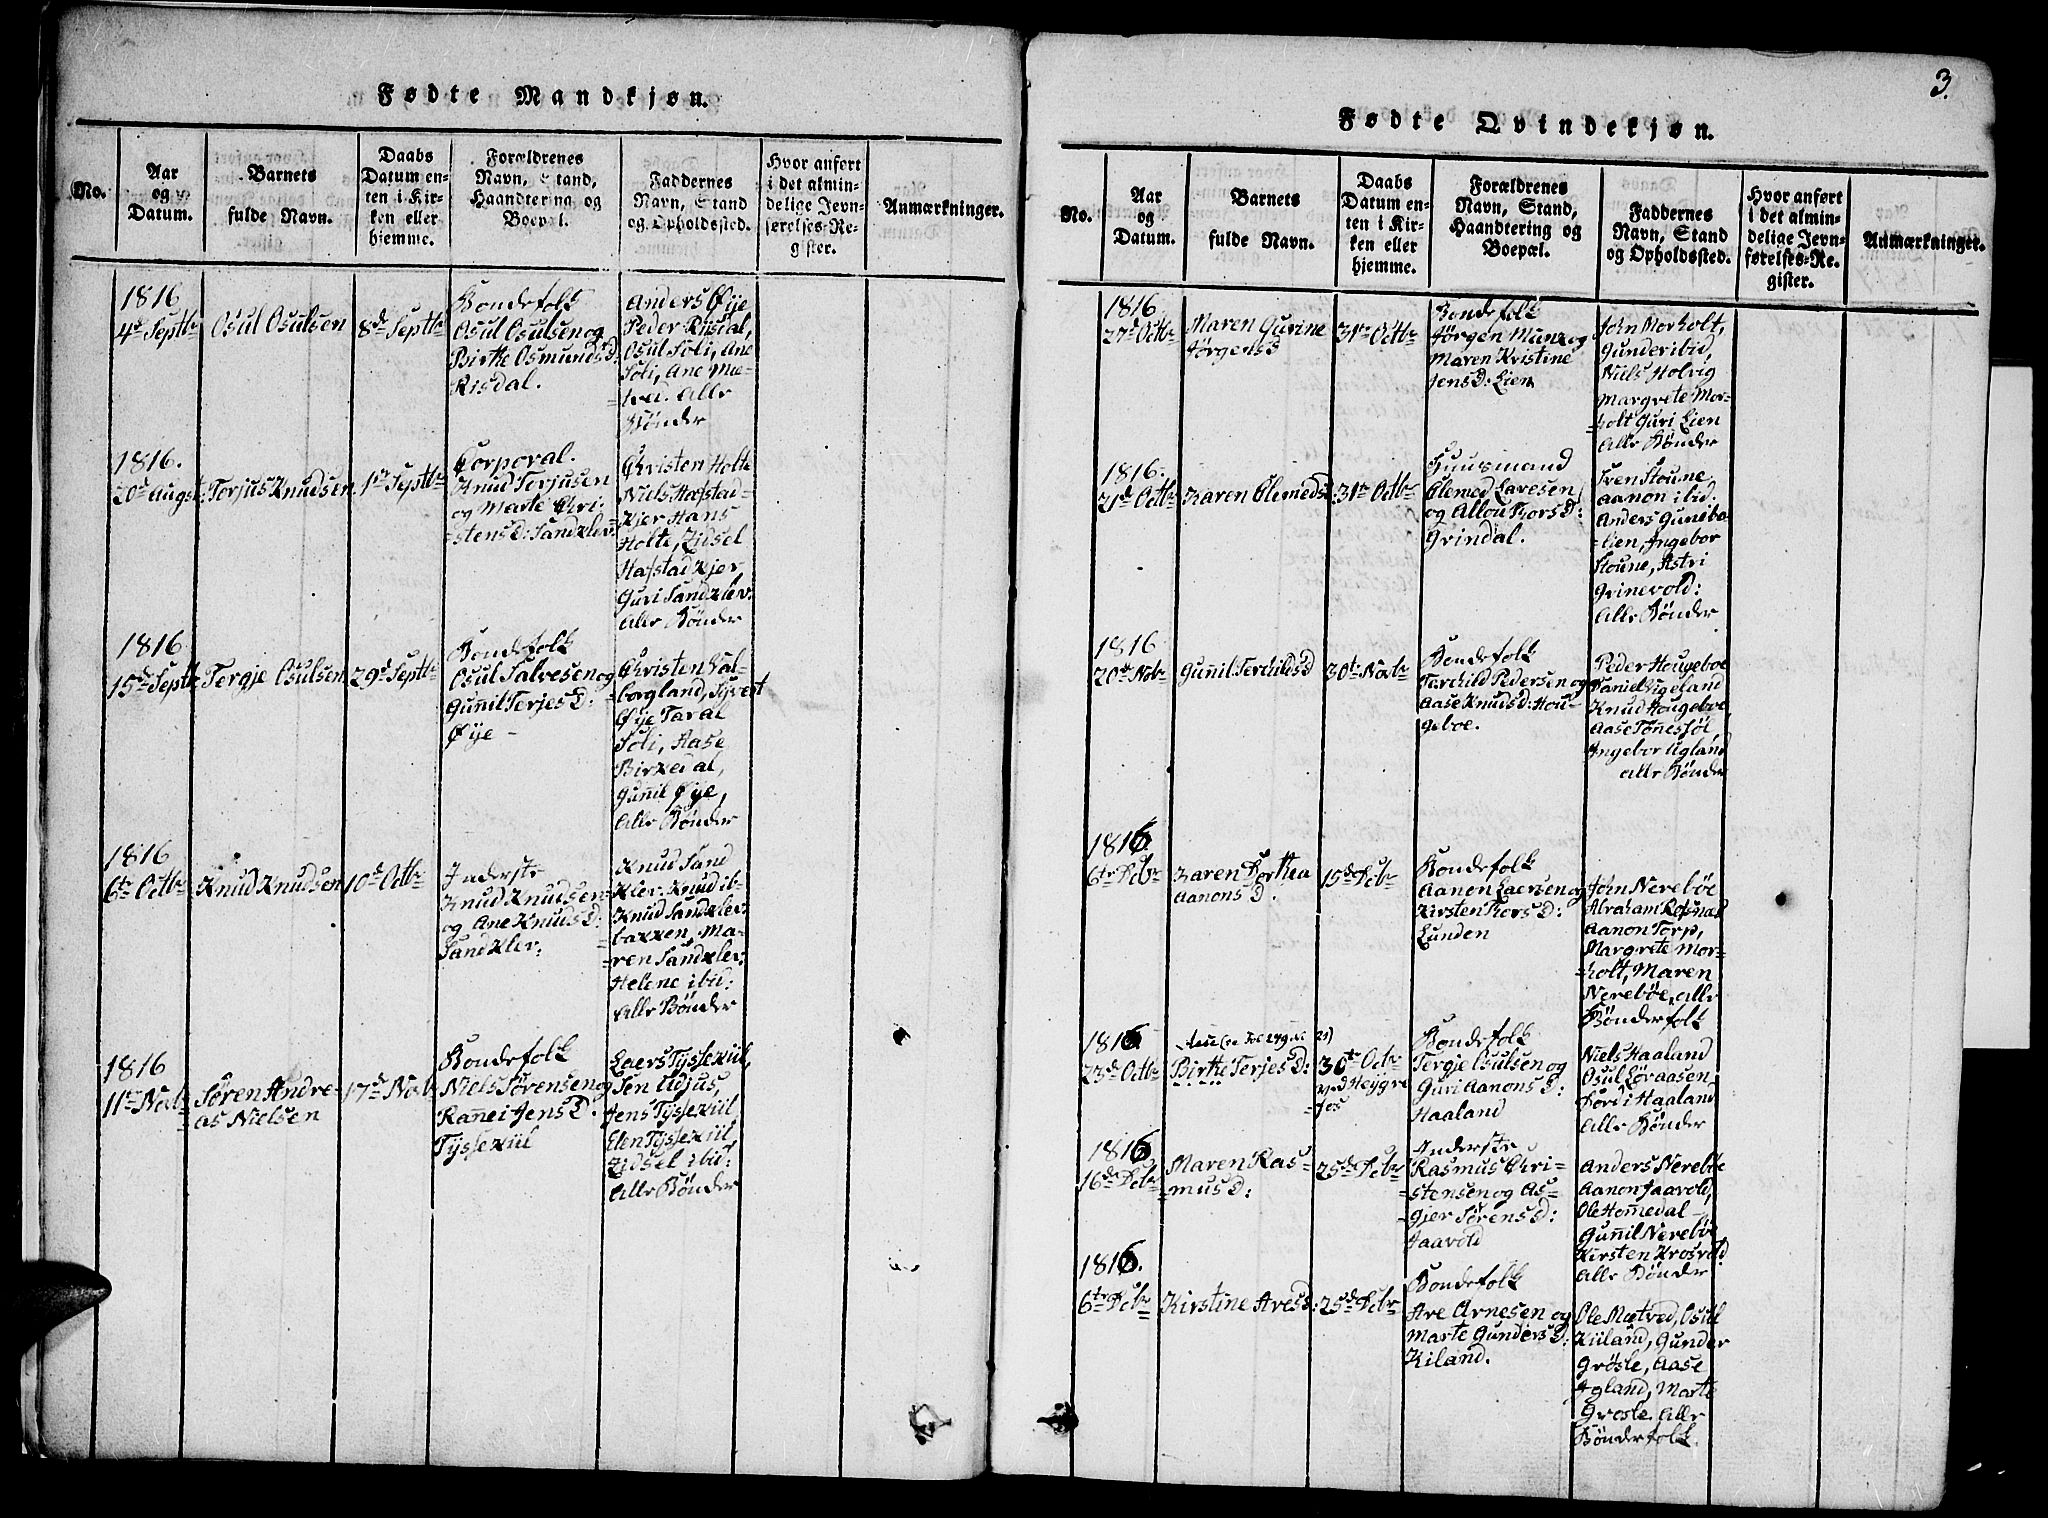 Fødte Mandkjøn.
No.
Aar
og
Datum.
Barnets
fulde Navn.
Daabs
Datum en-
ten i Kir-
ken eller
hjemme.
Forældrenes
Navn, Stand,
Haandtering og
Boepæl.
Faddernes
Navn, Stand
og Opholdssted.
Hvor anført
i det almin-
delige Jevn-
førelses-Re-
gister.
Anmærkninger.
1816
4de Septbr
Osul Osulsen
8de Septbr
Bondefolk
Osul Osulsen og
Birthe Osmunds D:
Risdal.
Anders Øye
Peder Riisdal,
Osul Soli, Ane
Soli, Ane
Alle
Bønder
1816.
20de Augst:
Torjus Knudsen
1ste Septbr
Corporal.
Knud Terjusen
og Marte Chri-
=stens D: Sandklev:
Christen Holte
Niels Hafstad-
Kjer Hans
Holte, Zidsel
Hafstadkjer,
Guri Sandklev:
Alle Bønder
1816
15de Septbr
Tergje Osulsen
29de Septbr
Bondefolk
Osul Salvesen og
Guñil Terjes D:
Øye -
Christen Val-
borgland, Syvert
Øye Taral
Soli, Aase
Birkedal,
Guñil Øye,
Alle Bønder
1816
6te Octbr
Knud Knudsen
10de Octbr
Inderste
Knud Knudsen
og Ane Knuds D:
Sandklev:
Knud Sand
Klev. Knud ib-
Knud Sandklev-
bakken, Ma-
=ren Sandklev:
Helene ibid:
Alle Bønder
1816
11te Novbr
Søren Andre-
=as Nielsen
17de Novb
Bondefolk
Niels Sørensen og
Rañei Jens D.
Tyssekiil
Laers Tyssekiil,
Jens Tyssekiil
Elen Tyssekiil
Zidsel ibid:
Alle Bønder
3.
Fødte Qvindekjøn.
No.
Aar
og
Datum.
Barnets
fulde Navn.
Daabs
Datum en-
ten i Kir-
ken eller
hjemme.
Forældrenes
Navn, Stand,
Haandtering og
Boepæl.
Faddernes
Navn, Stand
og Opholdssted.
Hvor anført
i det almin-
delige Jevn-
førelses-Re-
gister.
Anmærkninger.
1816.
27de Octbr
Maren Gurine
Jørgensd
31te Octbr
Bondefolk
Jørgen Munk og
Maren Kristine
Jens D: Lien
John Morholt,
Gunder ibid,
Niels Holvig
Margrete Mor-
=holt Guri Lien
Alle Bønder
1816.
21de Octbr
Karen Clemedsd
31te Octbr
Huusmand
Clemed Lavesen
og Allou Tors D:
Grindal.
Sven Stoune
Aanon ibid.
Anders Guneba-
=lien, Ingebor
Stoune, Astri
Grinevold:
Alle Bønder
1816
20de Nobr
Guñil Terchildsd
30te Novbr
Bondefolk
Terchild Pedersen og
Aase Knuds D: Hou-
geboe.
Peder Hougeboe
Daniel Vigeland
Knud Hougeboe,
Aase Toñessøl,
Ingebor Ugland
Alle Bønder
1816.
6te Decbr
Karen Dorthea
Aanons D.
15de Decbr
Bondefolk
Aanon Laersen og
Kirsten Tors D:
Lunden
John Nerebøe
Abraham Refsnæs
Aanon Torp,
Margrete Mor-
=holt, Maren
Nerebøe, alle
Bønderfolk
1816
23de Octbr
Birthe Terjes D:
30te Octbr
ved Høygre
=fos
Bondefolk
Tergje Osulsen og
Guri Aanons D:
Haaland
Niels Haaland
Osul Løraasen
Tordi Haaland
Alle Bønder
1816
16de Decbr
Maren Ras-
=mus D:
25de Decbr
Inderste
Rasmus Chri-
stensen og As-
=gjer Sørens D:
Jaavold
Anders Nerebøe
Aanon Jaavold,
Ole Homedal-
Guñil Nerebøe
Kirsten Krosvold
Alle Bønder
1816.
6te Decbr
Kirstine Aresd:
25de Decbr
Bondefolk
Are Arnesen og
Marte Gunders D:
Kiland.
Ole Mætved, Osul
Kiiland, Gunder
Grosle, Aase
Igland, Marte
Grosle. Alle
Bønderfolk.